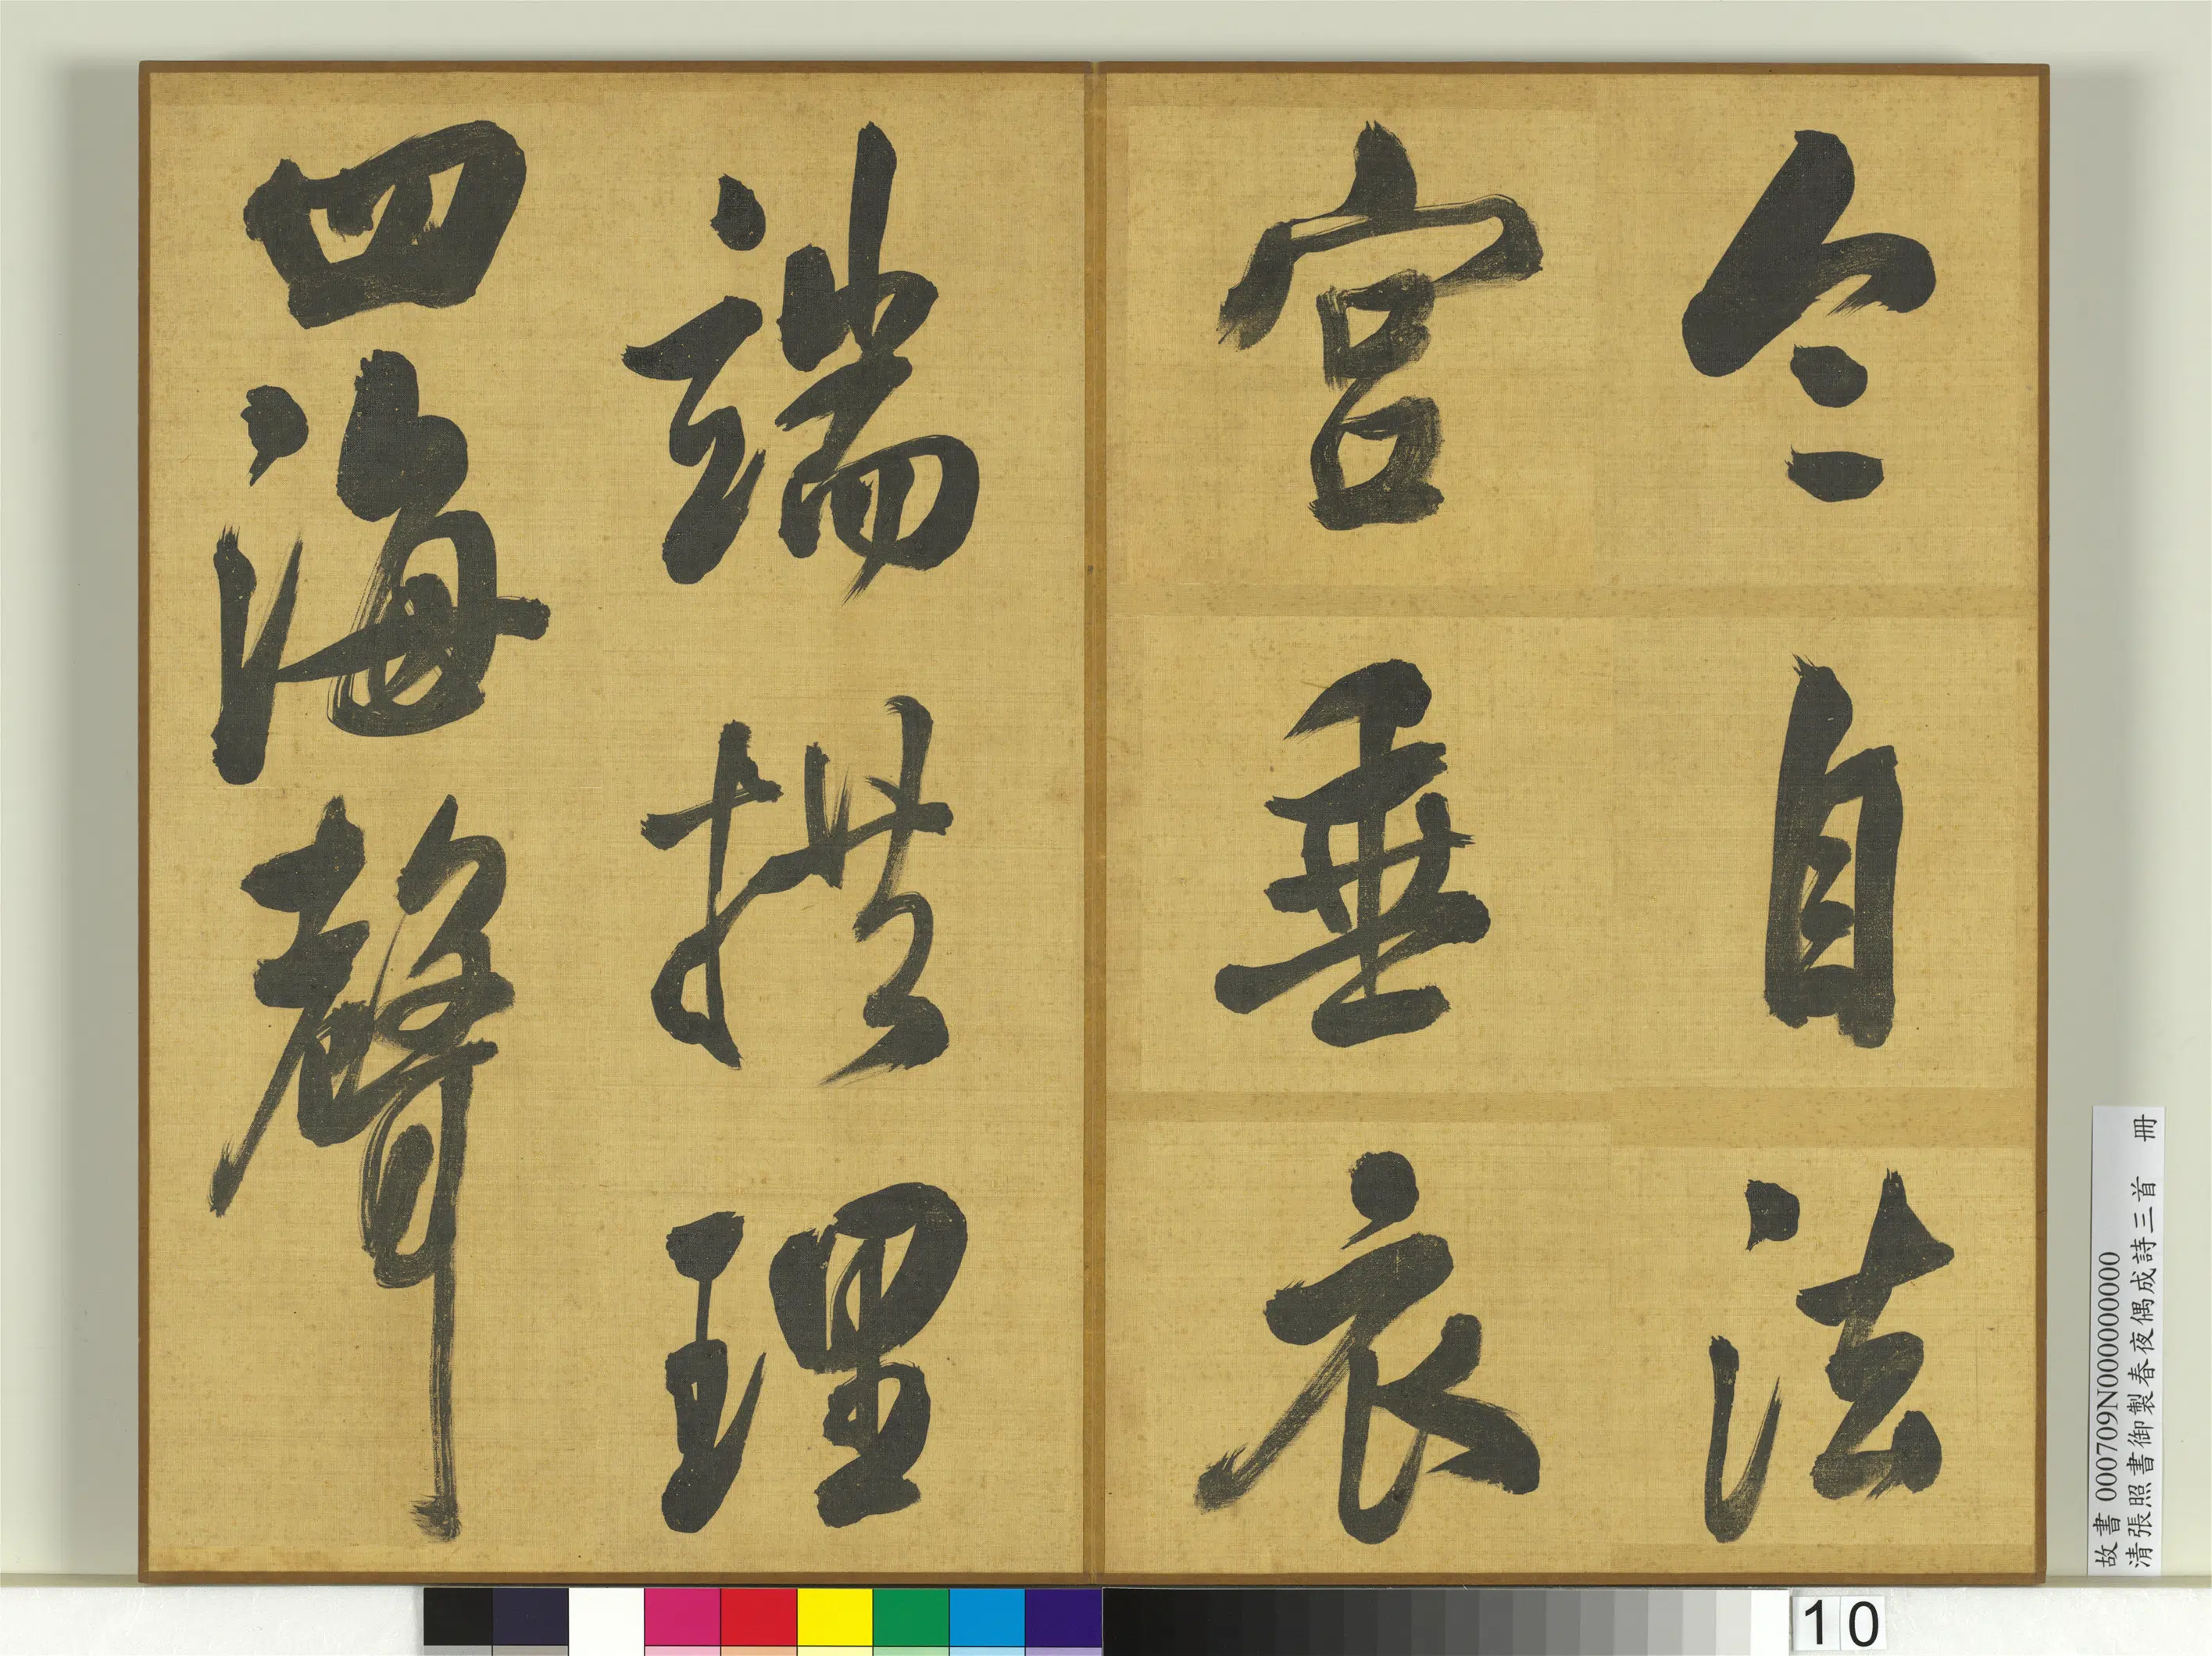 令自法
宮垂衣
端拱理
四海聲
故書 000709N000000000
清張照書御製春夜偶成詩三首 冊
10